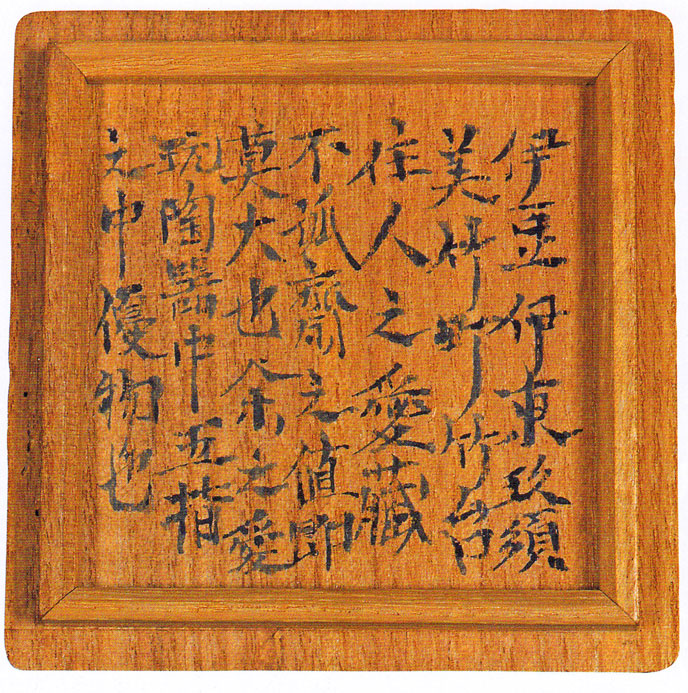 伊豆伊東玖須
美竹町竹台
住人之愛藏
不孤齋之値即
莫大也余之愛
玩陶器中五指
之中優物也